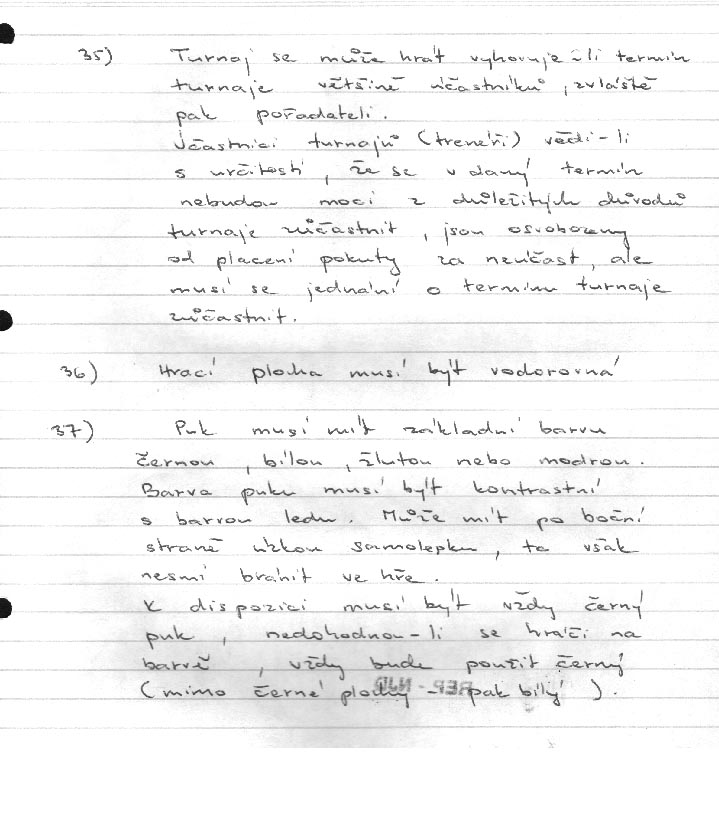 35) Turnaj se může hrát vyhovuje-li termín
turnaje většině účastníků, zvláště
pak pořadateli.
Účastníci turnajů (trenéři) vědí-li
s určitostí, že se v daný termín
nebudou moci z důležitých důvodů
turnaje zúčastnit, jsou osvobozeny
od placení pokuty za neúčast, ale
musí se jednání o termínu turnaje
zúčastnit.
36) Hrací plocha musí být vodorovná
37) Puk musí mít základní barvu
černou, bílou, žlutou nebo modrou.
Barva puku musí být kontrastní
s barvou ledu. Může mít po boční
straně úzkou samolepku, ta však
nesmí bránit ve hře.
K dispozici musí být vždy černý
puk, nedohodnou-li se hráči na
barvě, vždy bude použit černý
(mimo černé plochy - pak bílý).